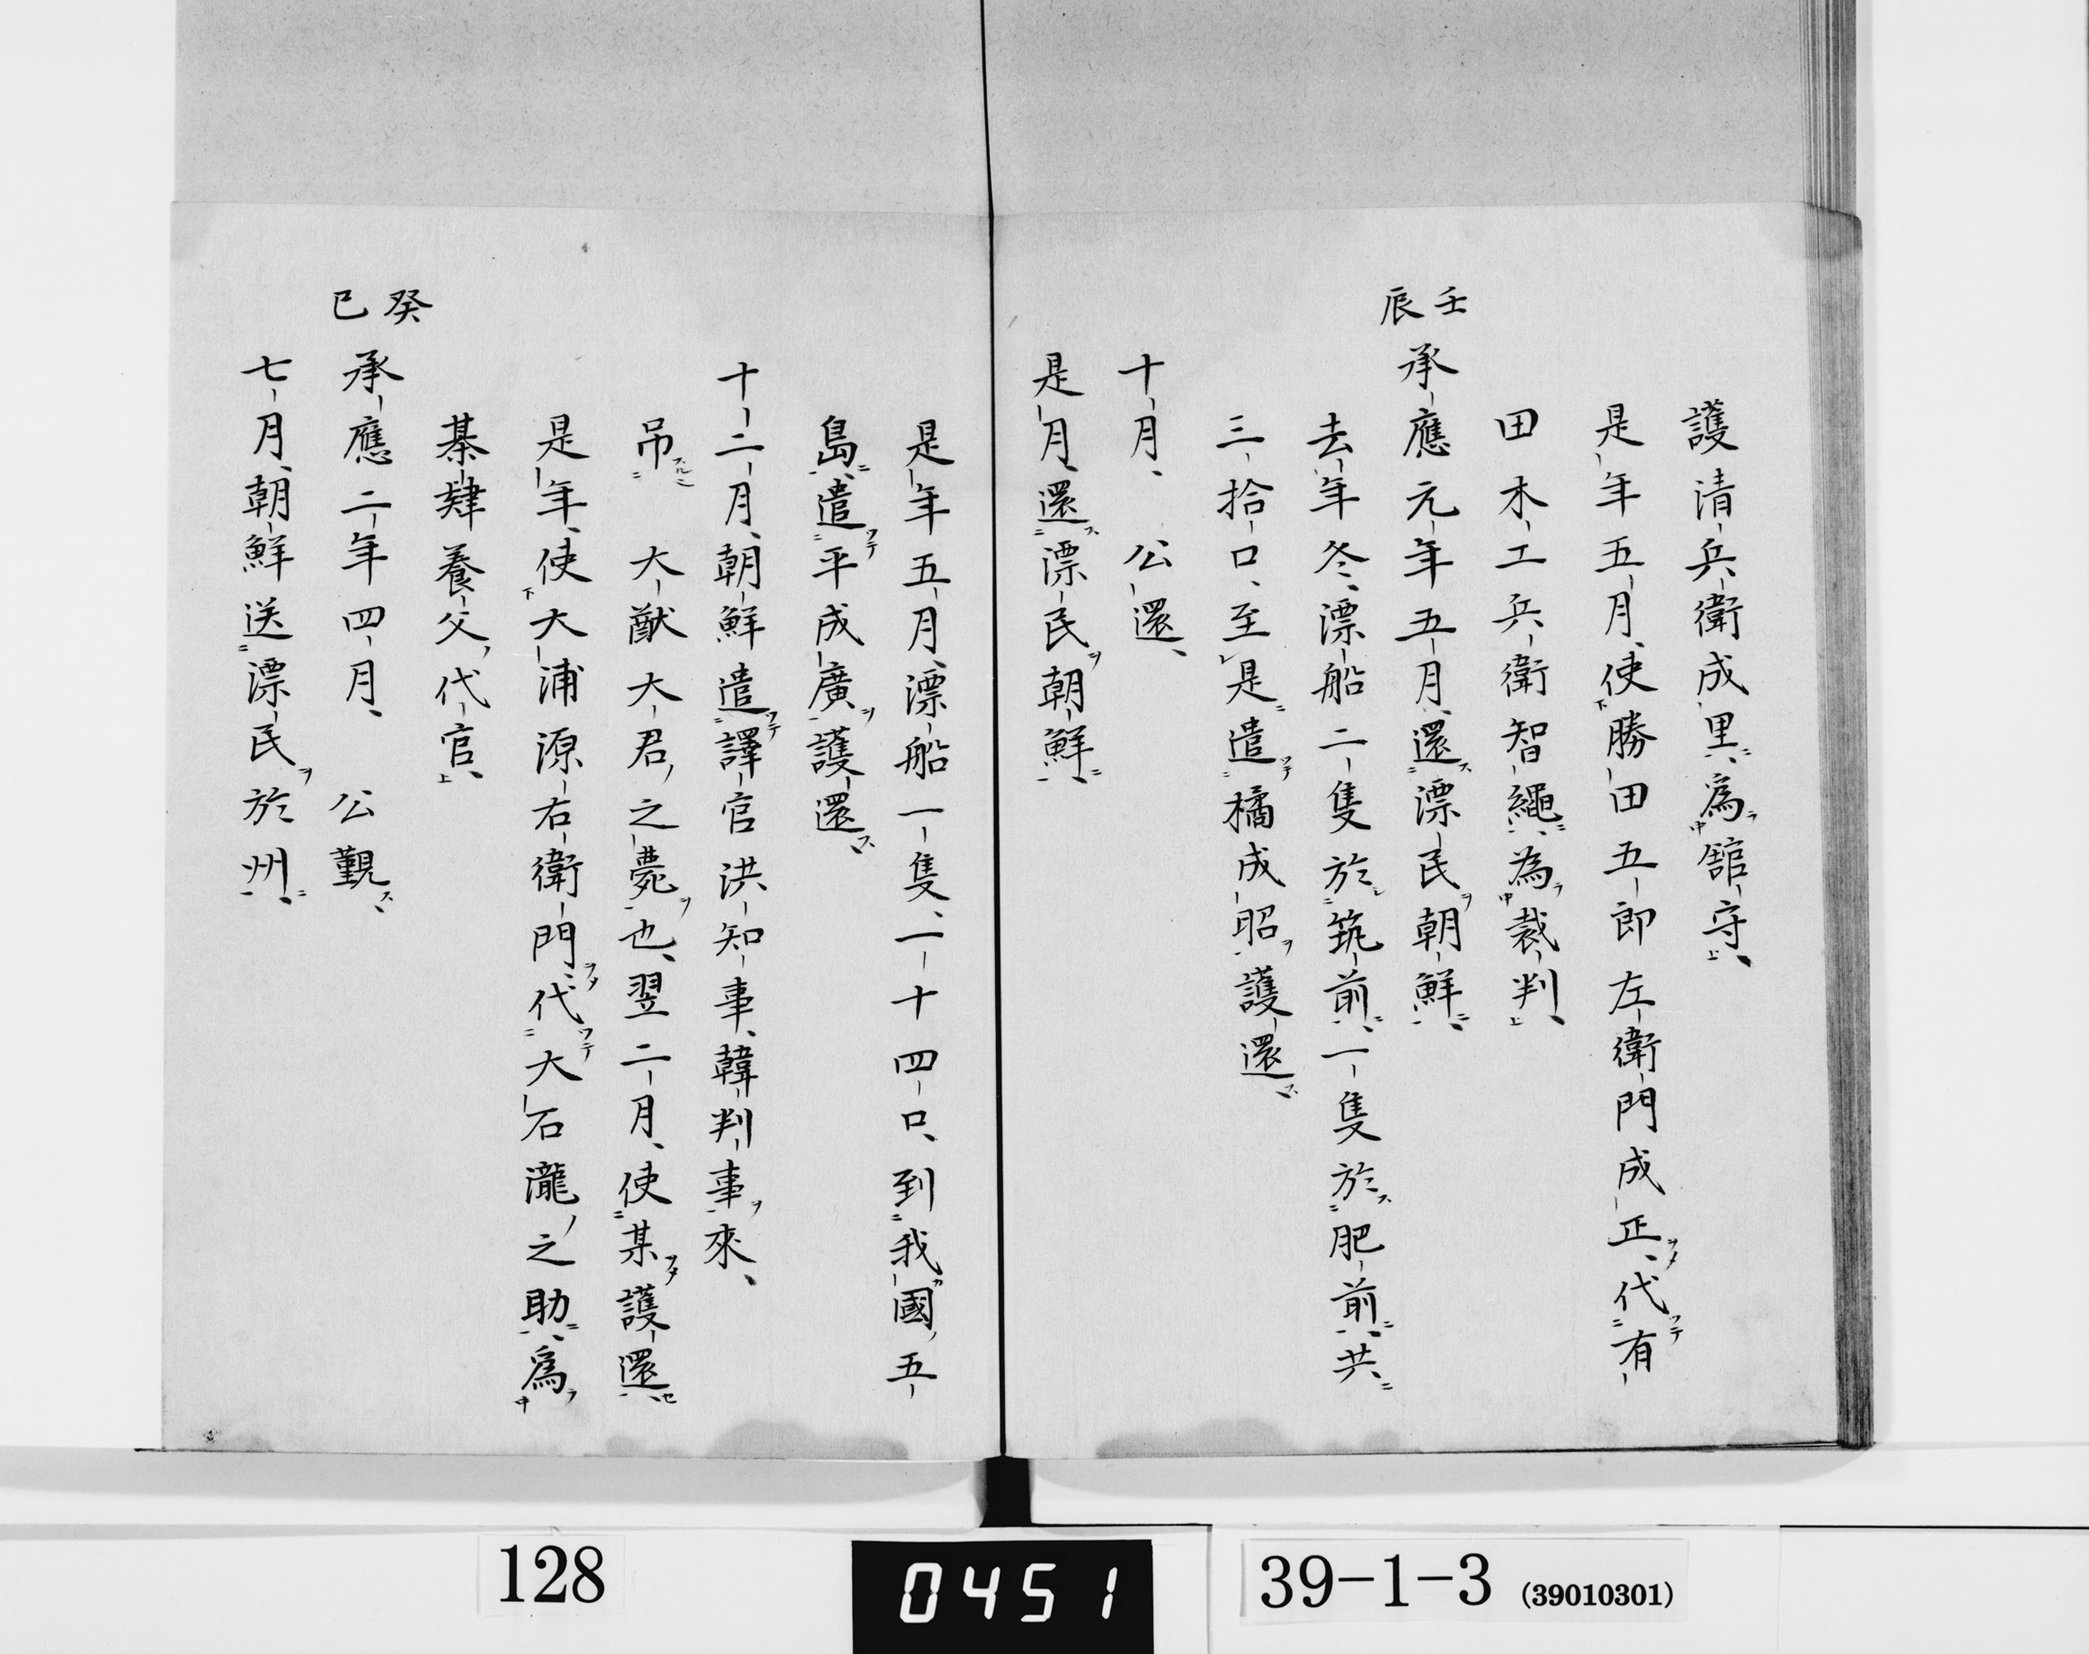 護清兵衛成里、爲舘守、
是年五月、使勝田五郎左衛門成正、代有
田木工兵衛智繩、為裁判、
壬辰
承應元年五月、還漂民朝鮮、
去年冬、漂船二隻於筑前、一隻於肥前、共
三拾口、至是遣橘成昭護還、
十月、公還、
是月、還漂民朝鮮、
是年五月、漂船一隻、一十四口、到我國五
島、遣平成廣護還、
十二月、朝鮮遣譯官洪知事、韓判事來、
吊大猷大君之薨也、翌二月、使某護還、
是年、使大浦源右衛門、代大石瀧之助、爲
綦肆養父代官、
癸巳
承應二年四月、公覲、
七月、朝鮮送漂民於州、
128
0451
39-1-3 (39010301)